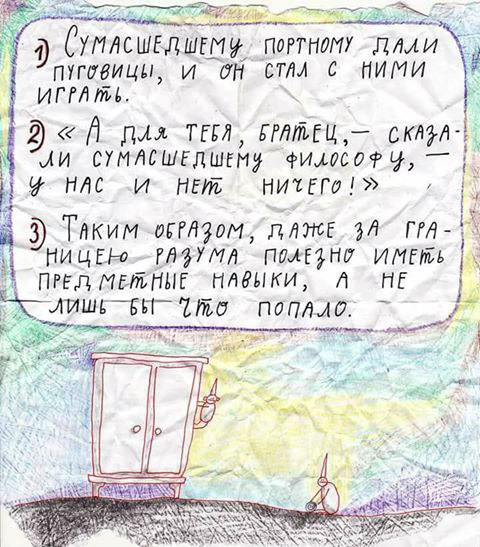 1) Сумасшедшему портному дали
пуговицы, и он стал с ними
играть.
2) « А для тебя, братец, – сказа-
ли сумасшедшему философу, –
у нас и нет ничего! »
3) Таким образом, даже за гра-
ницею разума полезно иметь
предметные навыки, а не
лишь бы что попало.